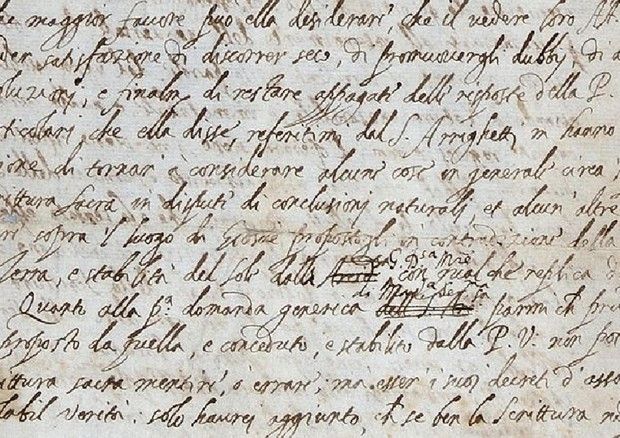 he maggior favore puo ella desiderare, che il vedere loro Al
der satisfazione di discorrer seco, di promuovergli dubbij, di a
oluzioni, e finalm.te di restare appagati delle risposte della P.
rticolari che ella disse, referitimi dal S. Arrighetti m hanno
ione di tornare à considerare alcune cose in generale circa
rittura Sacra in dispute di conclusioni naturali, et alcun' altre
re sopra il luogo di Giosue propostogli in contradizione della
Terra, e stabilità del Sole dalla Gran D.a M.re con qualche replica d
di Mad.a Ser.ma
Quanto alla p.a domanda generica parmi ch pru
proposto da quella, e conceduto, e stabilito dalla P. V. non po
ittura sacra mentire, ò errare, mà esser i suoi decreti d' asso
labil verità: solo haurei aggiunto, ch se ben la Scrittura n